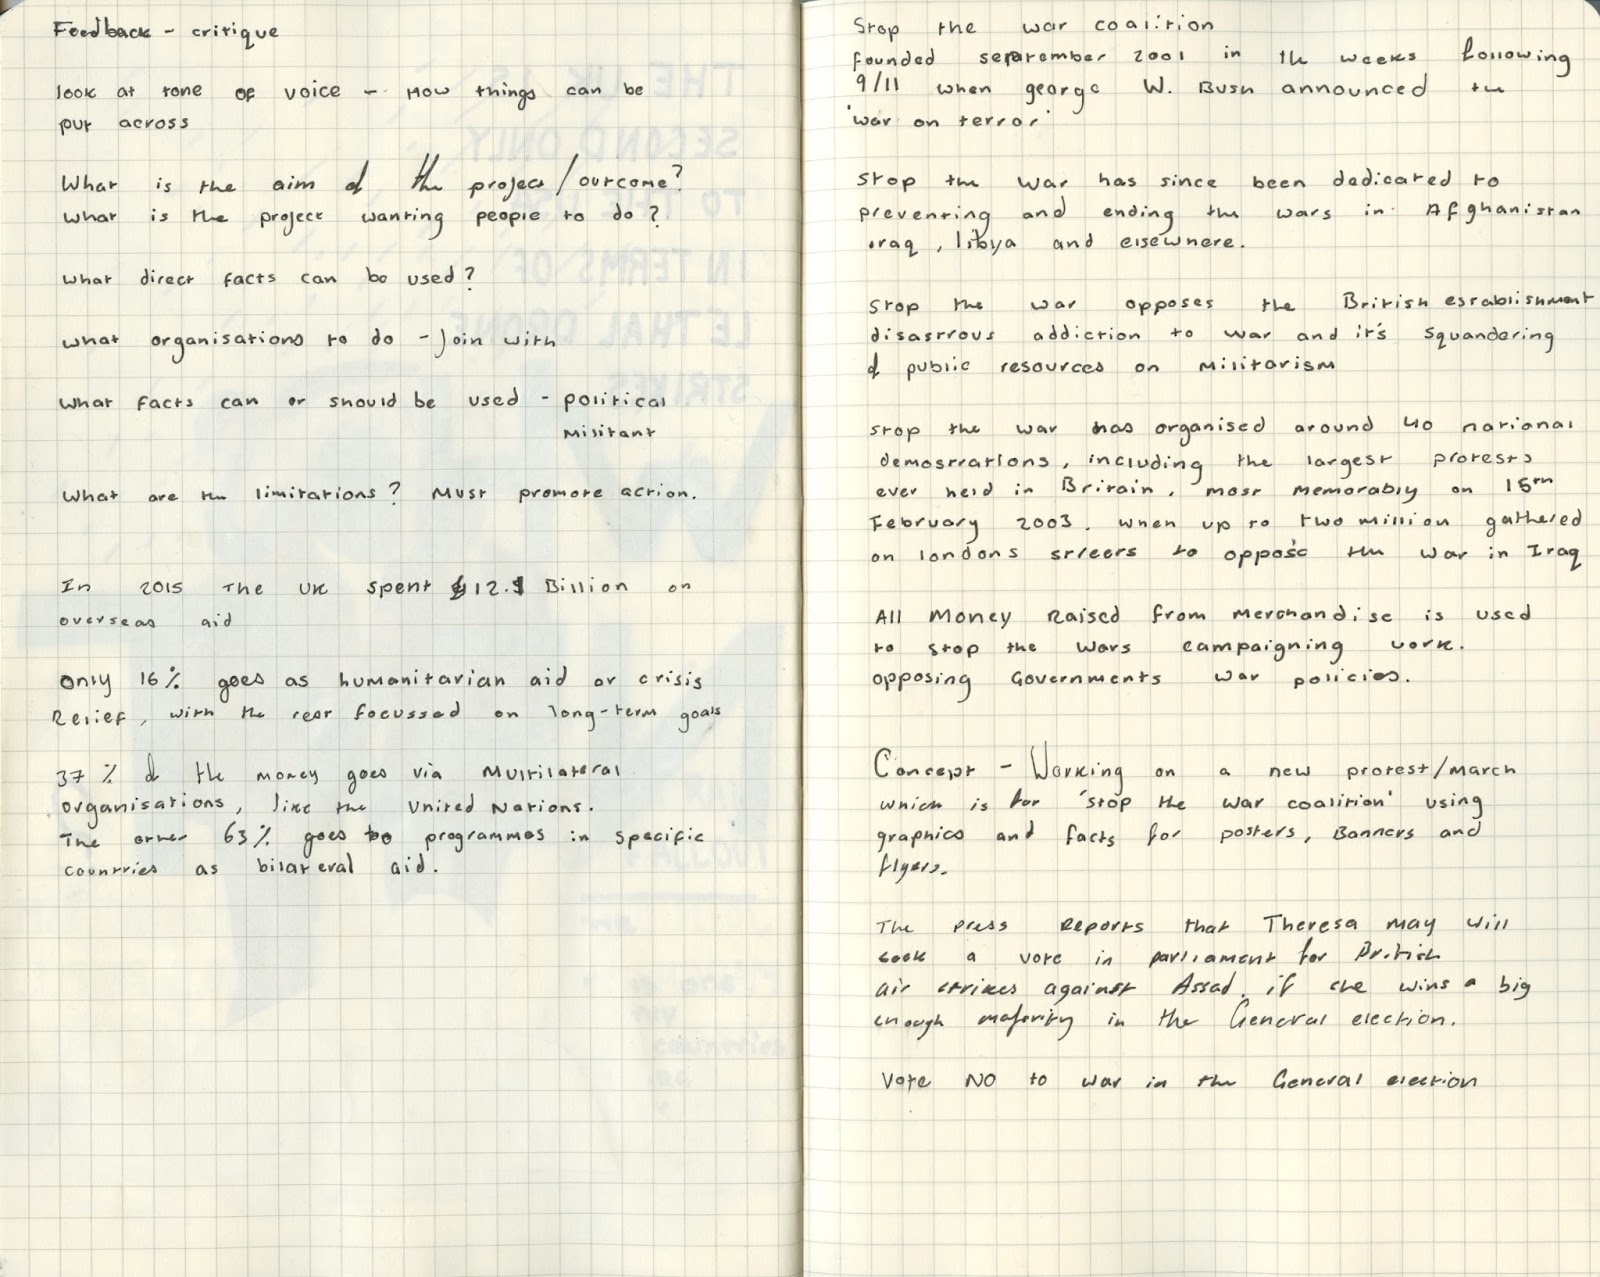 Feedback - critique
look at tone of voice - How things can be
put across
What is the aim of the project/outcome?
What is the project wanting people to do?
What direct facts can be used?
What organisations to do - Join with
What facts can or should be used - political
Militant
What are the limitations? Must promote action.
In 2015 The UK spent £12.1 Billion on
overseas aid
Only 16% goes as humanitarian aid or crisis
Relief, with the rest focussed on long-term goals
37% of the money goes via Multilateral
organisations, like the United Nations.
The other 63% goes to programmes in specific
countries as bilateral aid.
Stop the war coalition
founded september 2001 in the weeks following
9/11 when george W. Bush announced the
'war on terror'
Stop the war has since been dedicated to
preventing and ending the wars in Afghanistan
iraq, libya and elsewhere.
Stop the war opposes the British establishment
disastrous addiction to war and it's squandering
of public resources on Militarism
Stop the war has organised around 40 national
demostrations, including the largest protests
ever held in Britain, most memorably on 15th
February 2003. when up to two million gathered
on londons streets to oppose the war in Iraq
All Money Raised from Merchandise is used
to stop the wars campaigning work.
opposing Governments war policies.
Concept - Working on a new protest/march
which is for 'stop the war coalition' using
graphics and facts for posters, Banners and
flyers.
The press Reports that Theresa may will
seek a vote in parliament for British
air strikes against Assad, if she wins a big
enough majority in the General election.
Vote NO to war in the General election
THE UK IS
SECOND ONLY
TO
IN TERMS OF
LETHAL DRONE
STRIKES